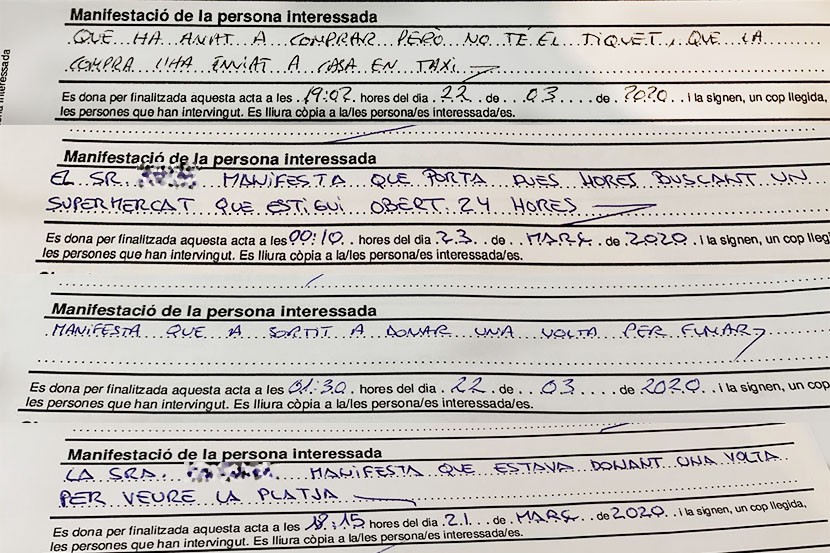 Manifestació de la persona interessada
QUE HA ANAT A COMPRAR PERÒ NO TÉ EL TIQUET, QUE LA
COMPRA L'HA ENVIAT A CASA EN TAXI.
Es dona per finalitzada aquesta acta a les 19:02 hores del dia 22 de 03 de 2020. I la signen, un cop llegida,
les persones que han intervingut. Es lliura còpia a la/les persona/es interessada/es.
Manifestació de la persona interessada
EL SR. MANIFESTA QUE PORTA DUES HORES BUSCANT UN
SUPERMERCAT QUE ESTIGUI OBERT 24 HORES
Es dona per finalitzada aquesta acta a les 00:10 hores del dia 23 de MARÇ de 2020. I la signen, un cop lleg
les persones que han intervingut. Es lliura còpia a la/les persona/es interessada/es.
Manifestació de la persona interessada
MANIFESTA QUE A SORTIT A DONAR UNA VOLTA PER FUMAR
Es dona per finalitzada aquesta acta a les 01:30 hores del dia 22 de 03 de 2020 I la signen, un cop
les persones que han intervingut. Es lliura còpia a la/les persona/es interessada/es.
Manifestació de la persona interessada
LA SRA. MANIFESTA QUE ESTAVA DONANT UNA VOLTA
PER VEURE LA PLATJA
Es dona per finalitzada aquesta acta a les 18:15 hores del dia 21 de MARÇ de 2020. I la signen, un cop llegida,
les persones que han intervingut. Es lliura còpia a la/les persona/es interessada/es.